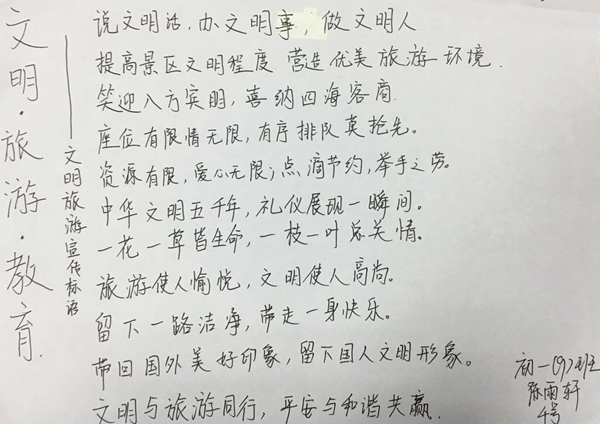 文明·旅游·教育.
——文明旅游宣传标语
说文明话,办文明事,做文明人
提高景区文明程度 营造优美旅游环境.
笑迎八方宾朋,喜纳四海客商.
座位有限情无限,有序排队莫抢先。
资源有限,爱心无限;点滴节约,举手之劳。
中华文明五千年,礼仪展现一瞬间。
一花一草皆生命,一枝一叶总关情。
旅游使人愉悦,文明使人高尚。
留下一路洁净,带走一身快乐。
带回国外美好印象,留下国人文明形象。
文明与旅游同行,平安与和谐共赢.
初一(9)班
陈雨轩
4号